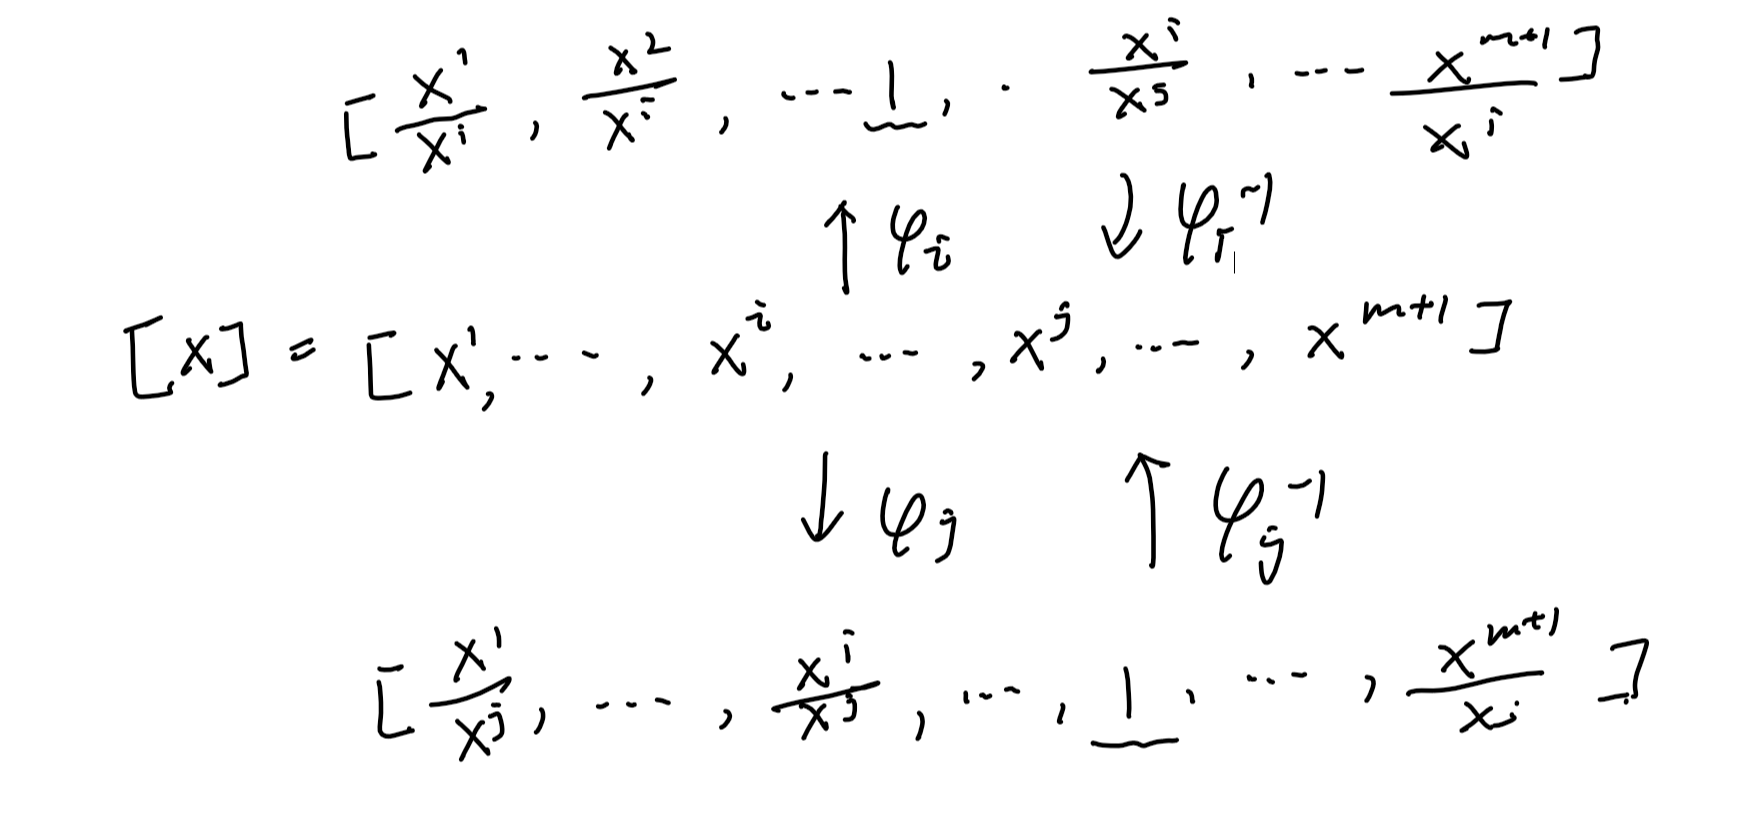 [x¹/xⁱ, x²/xⁱ, ... 1, . xⁱ/x⁵, ... xᵐ⁺¹/xⁱ]
↑ φᵢ ↓ φᵢ⁻¹
[x] = [x¹, ..., xⁱ, ..., xʲ, ..., xᵐ⁺¹]
↓ φⱼ ↑ φⱼ⁻¹
[x¹/xʲ, ..., xⁱ/xʲ, ..., 1, ..., xᵐ⁺¹/xʲ]